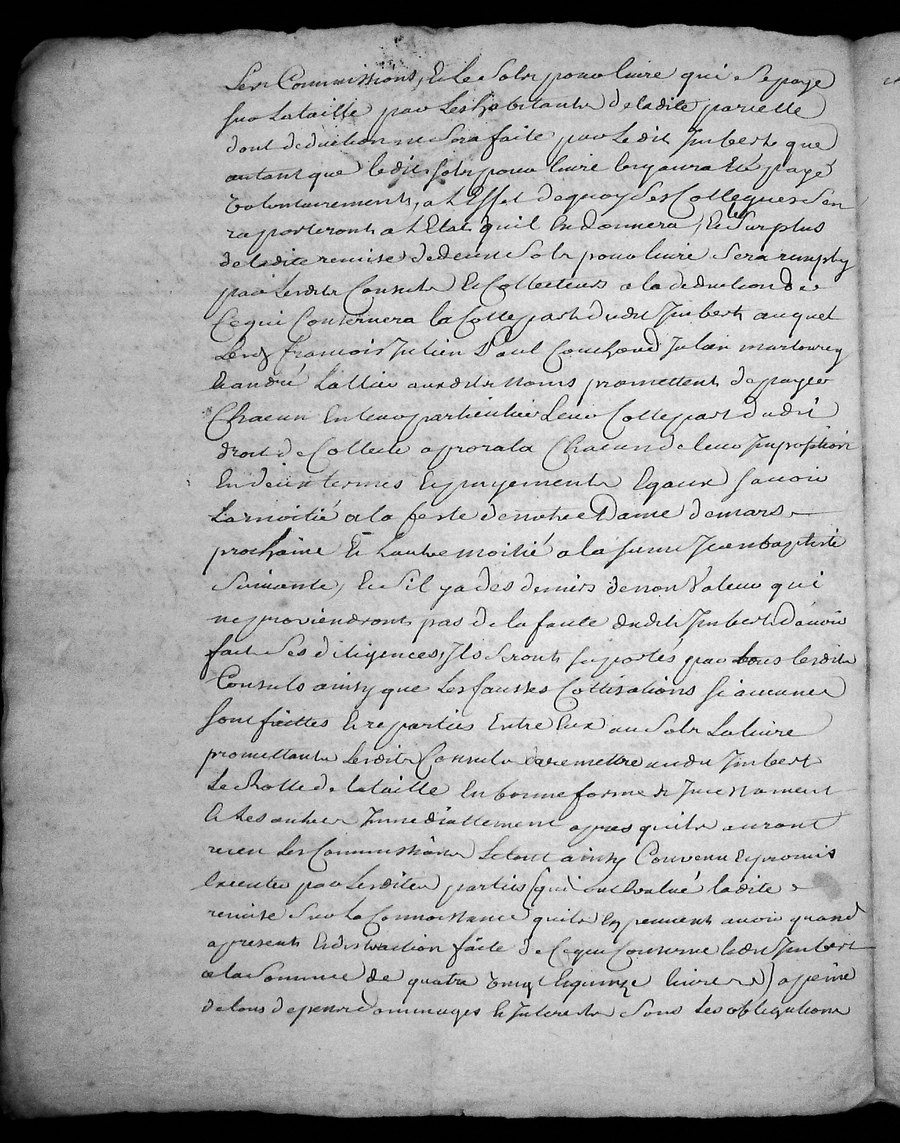 Les Commissions, Et Le Solz pour livre qui Se paye
Sur La taille par Les habitants de ladite parcelle
dont deduction ne Sera faite par Ledit Imbert que
autant que ledit Solz pour livre luy aura Eté payé
volontairement, a L'Effet de quoy Ses Collegues S'en
raporteront a L'Etat qu'il En donnera, Et le Surplus
de ladite remise de deux Solz pour livre Sera remply
par Lesdits Consuls Et Collecteurs a la deduction de
Ce qui Conсernera la Cotte part dudit Imbert auquel
Lesd francois Julien Paul Julien
Et andré aux dits noms promettent de payer
Chacun En leur particulier Leur Cotte part dudit
droit de Collecte a prorata Chacun de leur Imposition
En deux termes Et payements Egaux Scavoir
La moitié a la feste de notre Dame de mars
prochaine Et L'autre moitié a la Saint Jean baptiste
Suivante, Et S'il y a des deniers de non Valeur qui
ne proviendront pas de la faute dudit Imbert D'avoir
fait Ses diligences, Ils Seront Suportés par tous lesdits
Consuls ainsy que Les fausses Cottisations Si aucunes
Sont faittes Et reparties Entre Eux au Solz La livre
promettants Lesdits Consuls de remettre audit Imbert
Le Rolle de la taille En bonne forme
Immediattement apres quils auront
receu Les Commissions Le tout ainsy Convenu Et promis
Executer par Lesdites parties (qui ont Evalué ladite
remise Sur La Connoissance quils En peuvent avoir quand
a present Et distraction faite de Ce qui Concerne ledit Imbert
a la Somme de quatre vingt Et quinze livres) a peine
de tous depens dommages Et Interests Sous Les obligations